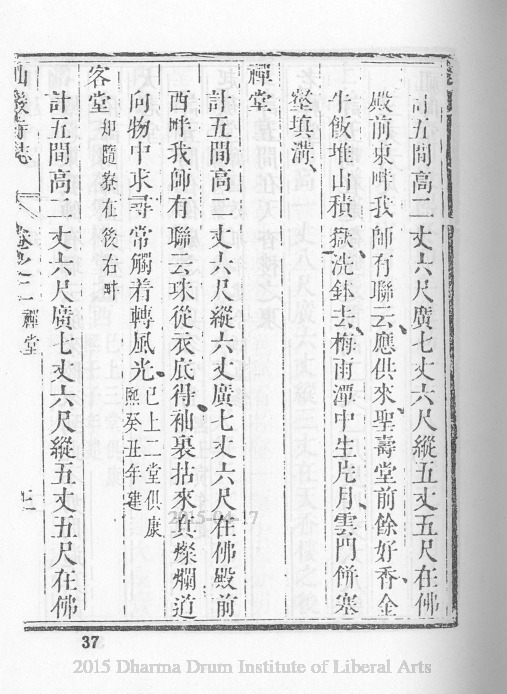 計五間高二丈六尺廣七丈六尺縱五丈五尺在佛
殿前東畔我師有聯云應供來聖壽堂前餘好香金
牛飯堆山積嶽洗鉢去梅雨潭中生片月雲門餅塞
壑填溝
禪堂
計五間高二丈六尺縱六丈廣七丈六尺在佛殿前
西畔我師有聯云珠從衣底得袖裏拈來真燦爛道
向物中求尋常觸着轉風光已上二堂俱康
熙癸丑年建
客堂 知隨寮在後右畔
計五間高二丈六尺廣七丈六尺縱五丈五尺在佛
山巖寺誌 卷之二 禪堂
37
2015-04-17
2015 Dharma Drum Institute of Liberal Arts